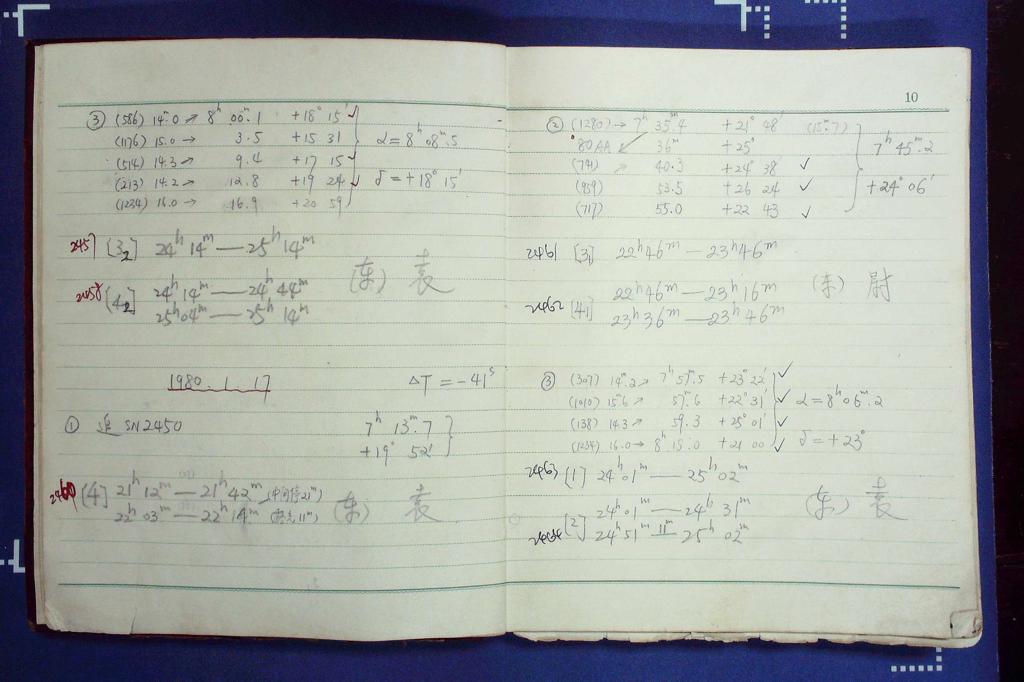 ③ (586) 14ᵐ.0 → 8ʰ 00ᵐ.1 +18° 15′ ✓
(1176) 15.0 → 3.5 +15 31
α = 8ʰ 08ᵐ.5
(514) 14.3 → 9.4 +17 15 ✓
(213) 14.2 → 12.8 +19 24 ✓
δ = +18° 15′
(1234) 16.0 → 16.9 +20 59
2457 [3₂] 24ʰ 14ᵐ — 25ʰ 14ᵐ
(东) 袁
2458 [4₂] 24ʰ 14ᵐ — 24ʰ 44ᵐ
25ʰ 04ᵐ — 25ʰ 14ᵐ
1980.1.17 ΔT = −41ˢ
① 追 SN2450 7ʰ 13ᵐ.7
+19° 52′
2460 [4] 21ʰ 12ᵐ — 21ʰ 42ᵐ (中间停21ᵐ)
22ʰ 03ᵐ — 22ʰ 14ᵐ (11ᵐ)
(东) 袁
10
② (1280) → 7ʰ 35ᵐ.4 +21° 48′ (15ᵐ.7)
80AA 36ᵐ +25°
7ʰ 45ᵐ.2
(741) → 40.3 +24° 38′ ✓
(959) 53.5 +26 24 ✓
+24° 06′
(717) 55.0 +22 43 ✓
2461 [3₁] 22ʰ 46ᵐ — 23ʰ 46ᵐ
(东) 尉
2462 [4₁] 22ʰ 46ᵐ — 23ʰ 16ᵐ
23ʰ 36ᵐ — 23ʰ 46ᵐ
③ (307) 14ᵐ.2 → 7ʰ 57ᵐ.5 +23° 22′ ✓
(1010) 15.6 → 57.6 +22° 31′ ✓
α = 8ʰ 06ᵐ.2
(138) 14.3 → 59.3 +25° 01′ ✓
(1234) 16.0 → 8ʰ 15.0 +21 00 ✓
δ = +23°
2463 [1] 24ʰ 01ᵐ — 25ʰ 02ᵐ
(东) 袁
2464 [2] 24ʰ 01ᵐ — 24ʰ 31ᵐ
24ʰ 51ᵐ 11ᵐ 25ʰ 02ᵐ